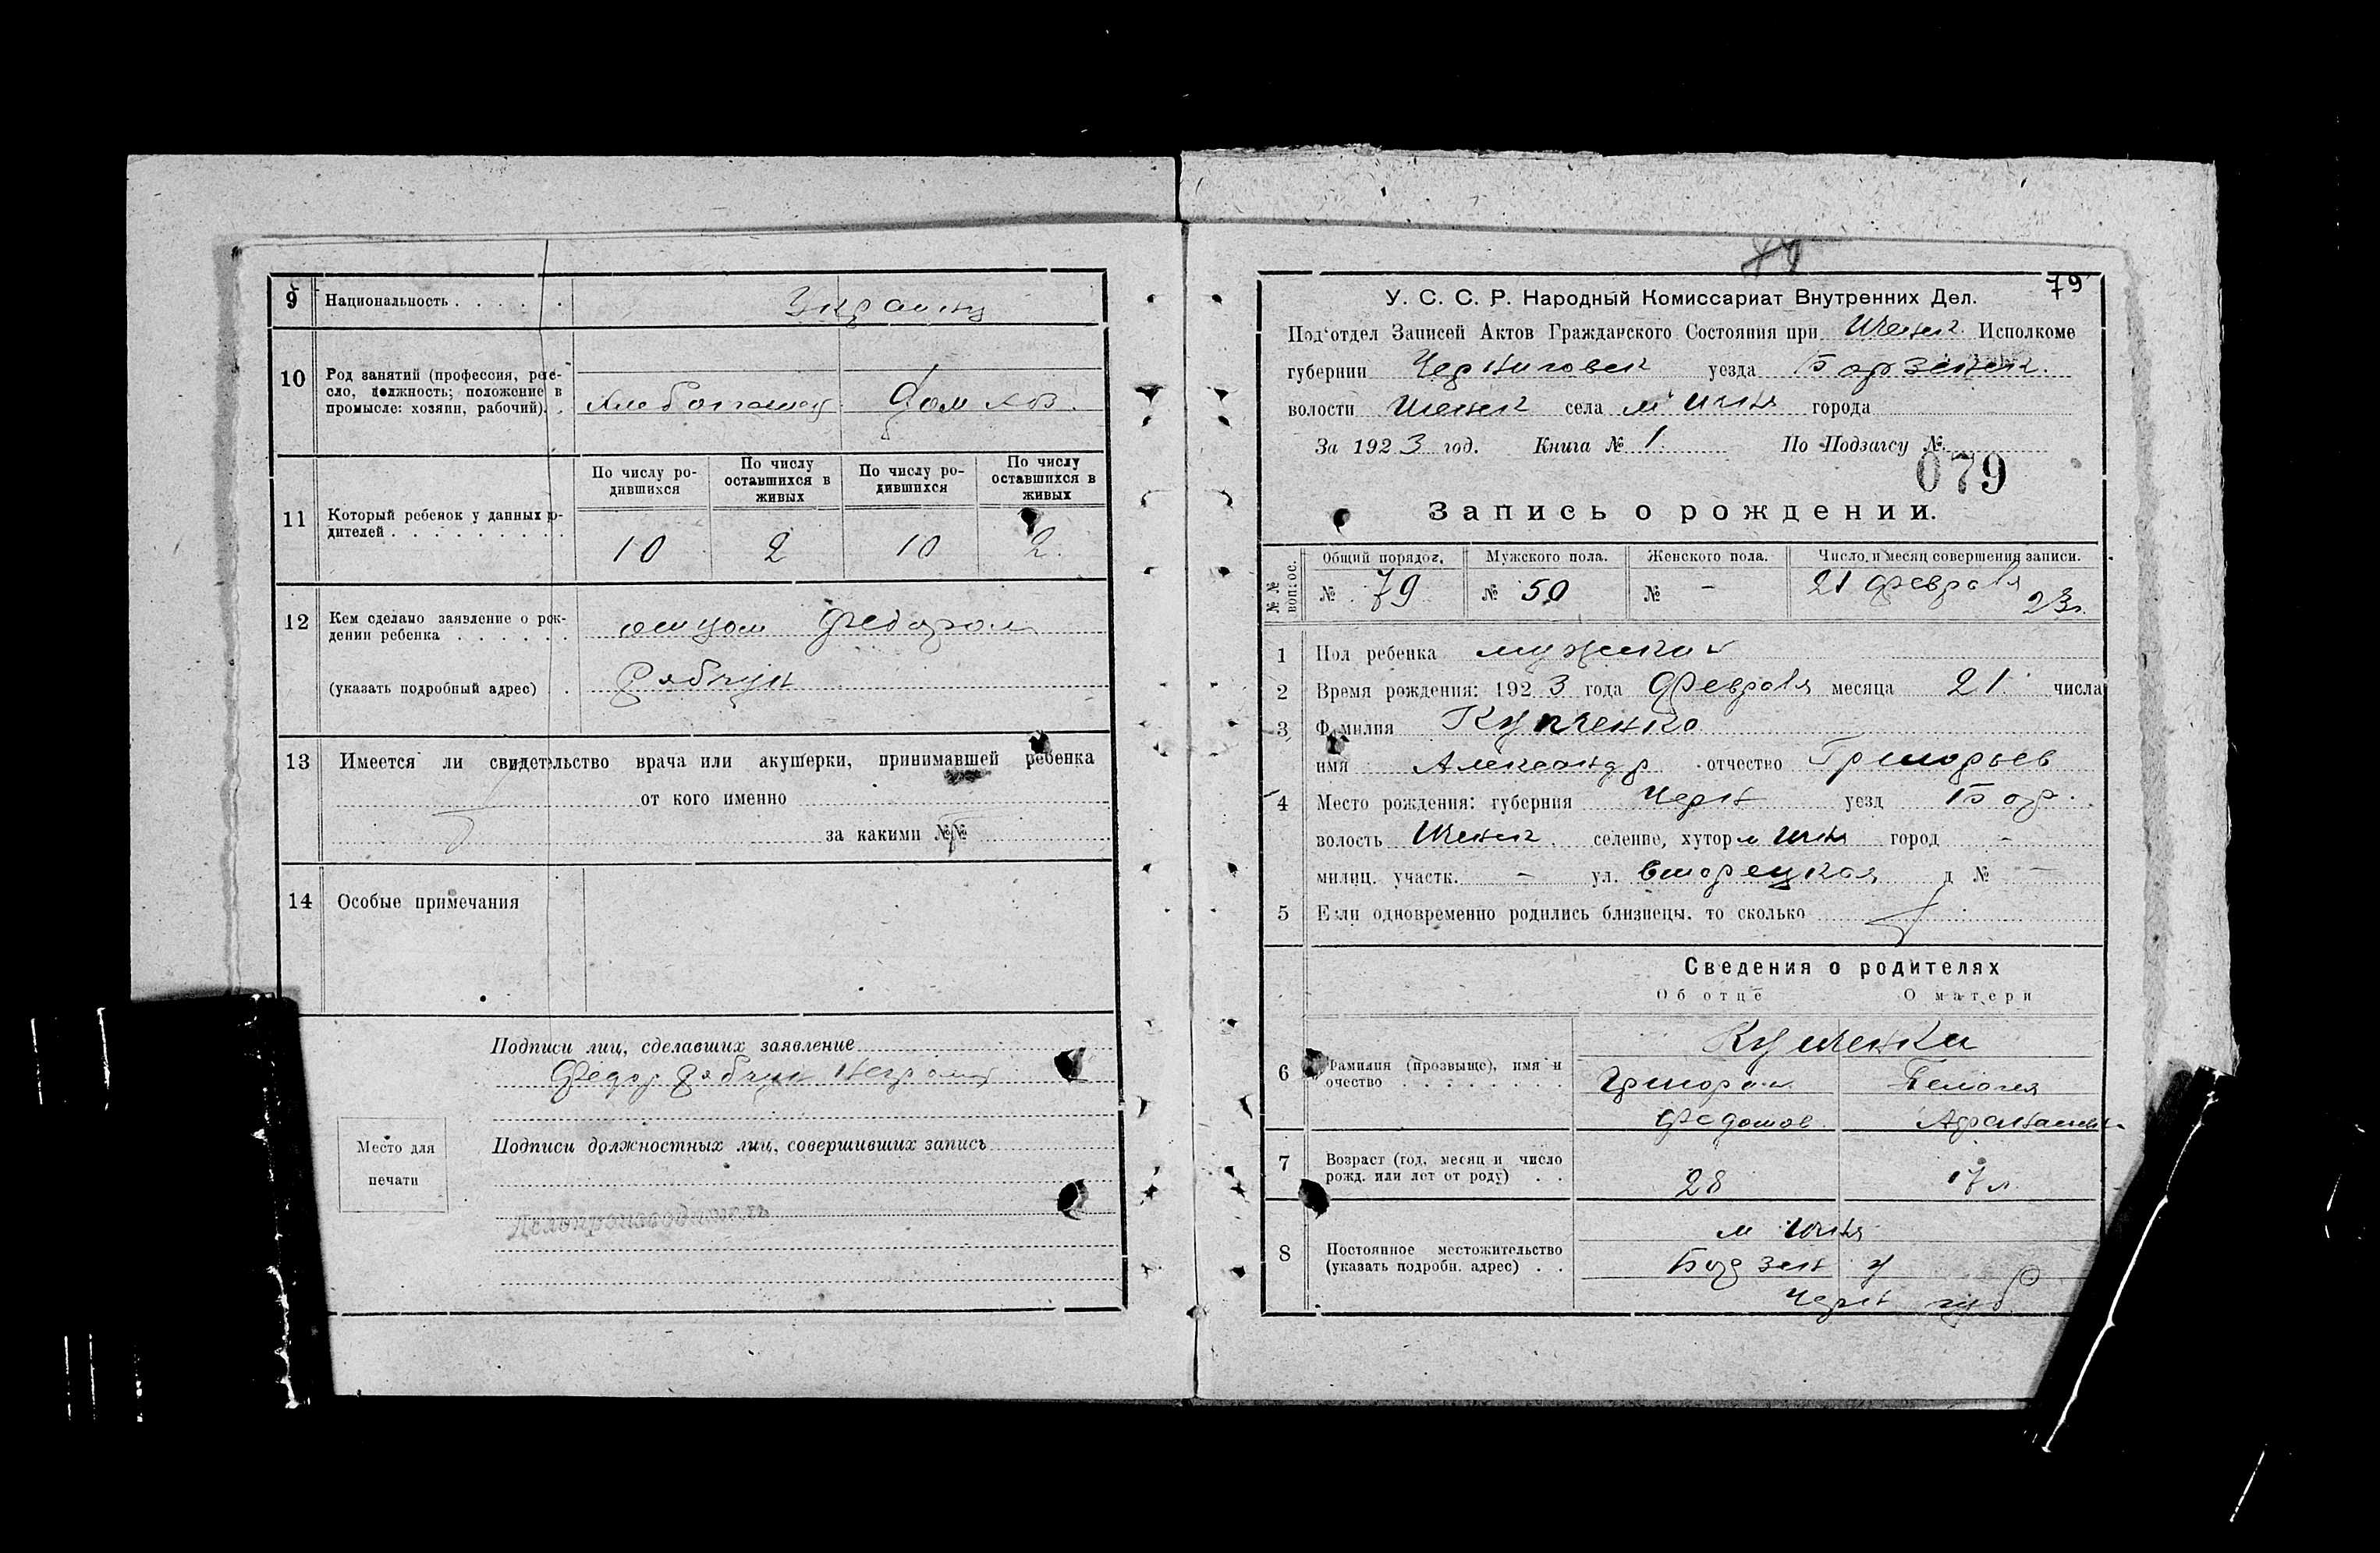 9 Национальность . . . . . Украинц
10 Род занятий (профессия, реме-
сло, должность; положение в
промысле: хозяин, рабочий). .
Дом хоз.
По числу ро-
дившихся
По числу
оставшихся в
живых
По числу ро-
дившихся
По числу
оставшихся в
живых
11 Который ребенок у данных ро-
дителей . . . . . . . . . .
10 2 10 2.
12 Кем сделано заявление о рож-
дении ребенка . . . . . .
отцом Федором
(указать подробный адрес) . . Рябчун
13 Имеется ли свидетельство врача или акушерки, принимавшей ребенка
от кого именно
за какими №№
14 Особые примечания
Подписи лиц, сделавших заявление
Федор Рябчун неграмот
Подписи должностных лиц, совершивших запись
Место для
печати
Делопроизводитель
79
У. С. С. Р. Народный Комиссариат Внутренних Дел.
Под‘отдел Записей Актов Гражданского Состояния при Иченск. Исполкоме
губернии Черниговск уезда Борзенск.
волости Иченск села м Ичня города
За 1923 год. Книга № 1. По Подзагсу №
079
Запись о рождении.
№№ вопрос.
Общий порядок. Мужского пола. Женского пола. Число и месяц совершения записи.
№ 79 № 50 № – 21 февраля
23г.
1 Пол ребенка мужской
2 Время рождения: 1923 года Февраля месяца 21. числа
3 Фамилия Купченко
имя Александр отчество Григорьев
4 Место рождения: губерния Черн уезд Бор.
волость Иченск селение, хутор м Ичня город –
милиц. участк. – ул. д № –
5 Если одновременно родились близнецы, то сколько
Сведения о родителях
Об отце О матери
6 Фамилия (прозвыще), имя и
очество . . . . . . . .
Григорий
Федотов
7 Возраст (год, месяц и число
рожд. или лет от роду) . .
28 17 л.
8 Постоянное местожительство
(указать подробн. адрес) . .
м Ичня
Борзен у
Черн губ